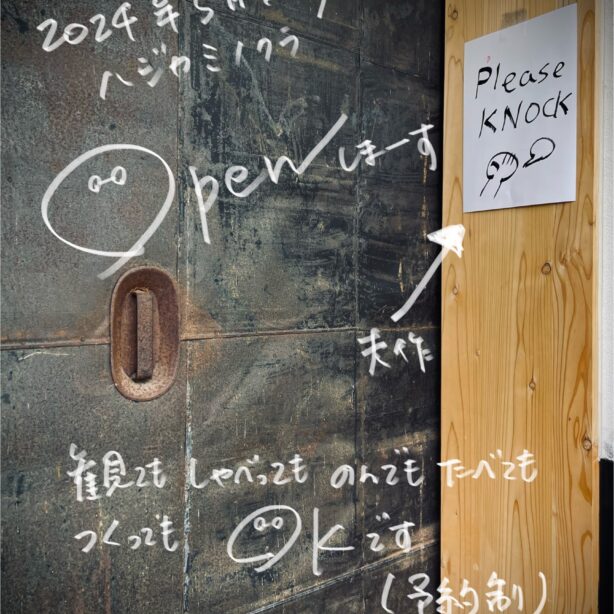 2024年5月
ハジカミノクラ
Openしまーす
Please
KNOCK
夫作
観ても しゃべっても のんでも たべても
つくっても OKです
(予約制)